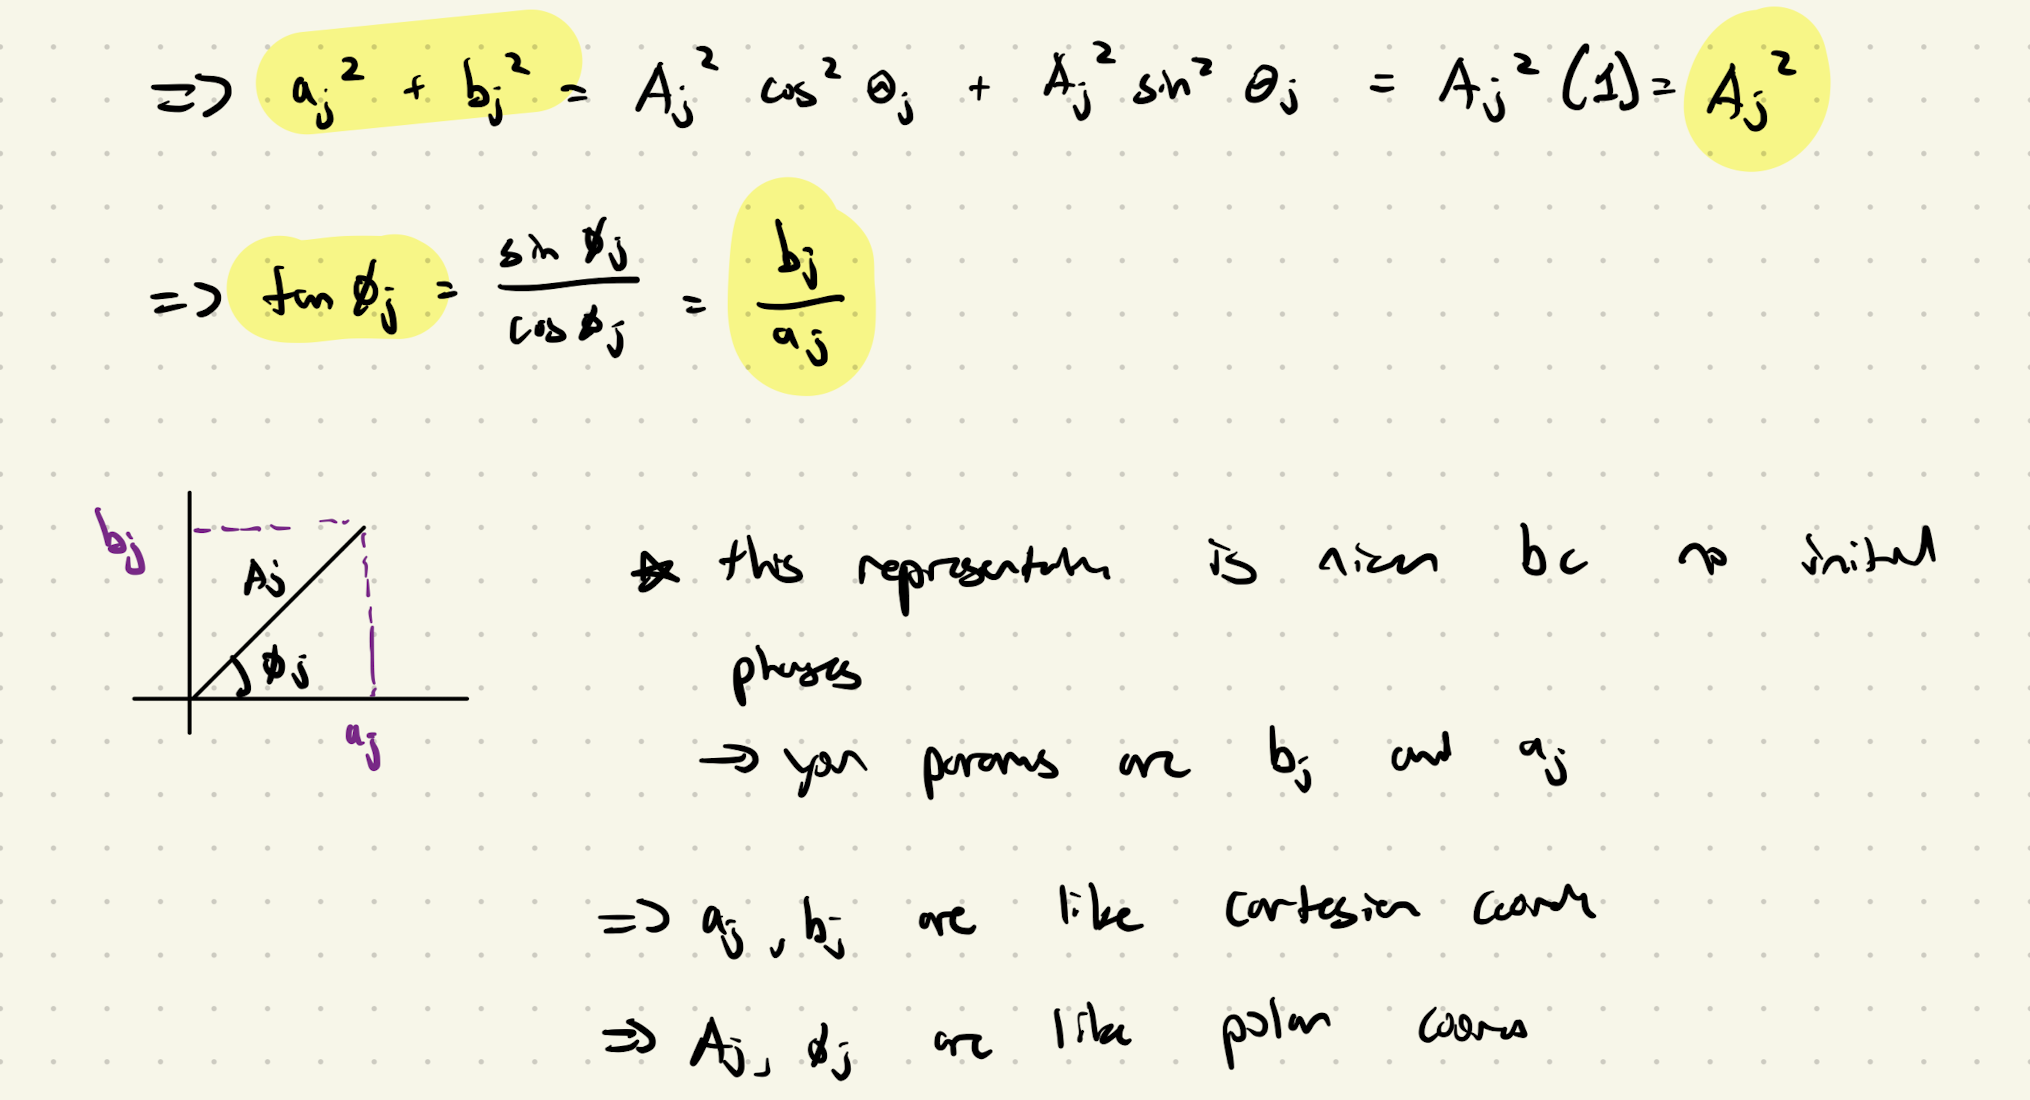 => aⱼ² + bⱼ² = Aⱼ² cos² θⱼ + Aⱼ² sin² θⱼ = Aⱼ² (1) = Aⱼ²
=> tan ϕⱼ = sin ϕⱼ / cos ϕⱼ = bⱼ / aⱼ
bⱼ
Aⱼ
ϕⱼ
aⱼ
☆ this representation is nicer bc no initial
phases
→ your params are bⱼ and aⱼ
=> aⱼ, bⱼ are like cartesian coords
=> Aⱼ, ϕⱼ are like polar coords